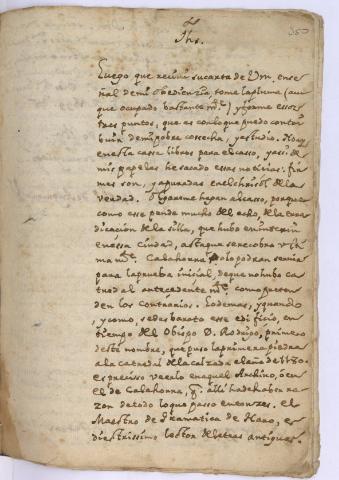 350
Jhs.
Luego que recivi su carta de Vm. en se
ñal de mi obedienzia, tome la pluma (aun
que ocupado bastante mte.) y forme essos
tres puntos, que es con lo que puedo contri
buir de mi pobre cosecha, y estudio. No ay
en esta cassa libros para el casso, y assi de
mis papeles he sacado essas noticias: fir
mes son, y apuradas en el chrisol de la
verdad. no haran al casso, porque
como este pende mucho del echo, de la tras
dicacion de la silla, que hubo
en essa Ciudad, asta que se recobro ulti
ma mte. Calahorra, solo podran servir
para la prueba inicial, de que no hubo ca
tredal antecedente mte. como preten
den los contrarios. Lo demas, y quando
y como, se desbarato esse edificio, en
tiempo del Obispo D. Rodrigo, primero
deste nombre, que puso la primera piedra
a la catredal de la calzada el año de 1180.
es precisso veerlo en aquel Archivo, o en
el de Calahorra, q alli ha de haber ra
zon de todo lo que passo entonzes. el
Maestro de Gramatica de Haro, es
diestrissimo lector de letras antiguas.